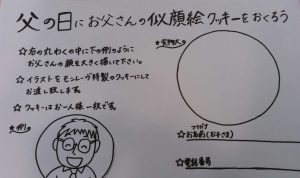 父の日にお父さんの似顔絵クッキーをおくろう
☆右の丸わくの中に下の例のように
お父さんの顔を大きく描いて下さい。
☆イラストをモンレーヴ特製のクッキーにして
お渡し致します。
☆クッキーはお一人様一枚です。
☆例。
☆実物大
フリガナ
☆お名前(お子さま)
☆電話番号